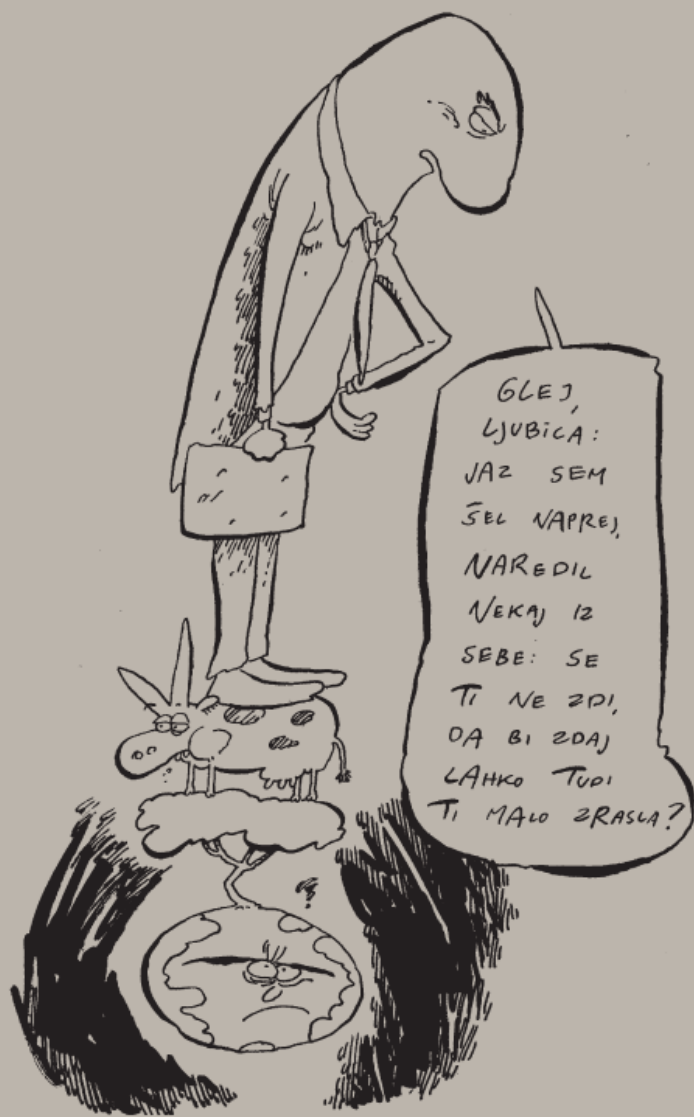 GLEJ,
LJUBICA:
JAZ SEM
ŠEL NAPREJ,
NAREDIL
NEKAJ IZ
SEBE: SE
TI NE ZDI,
DA BI ZDAJ
LAHKO TUDI
TI MALO ZRASLA?
?